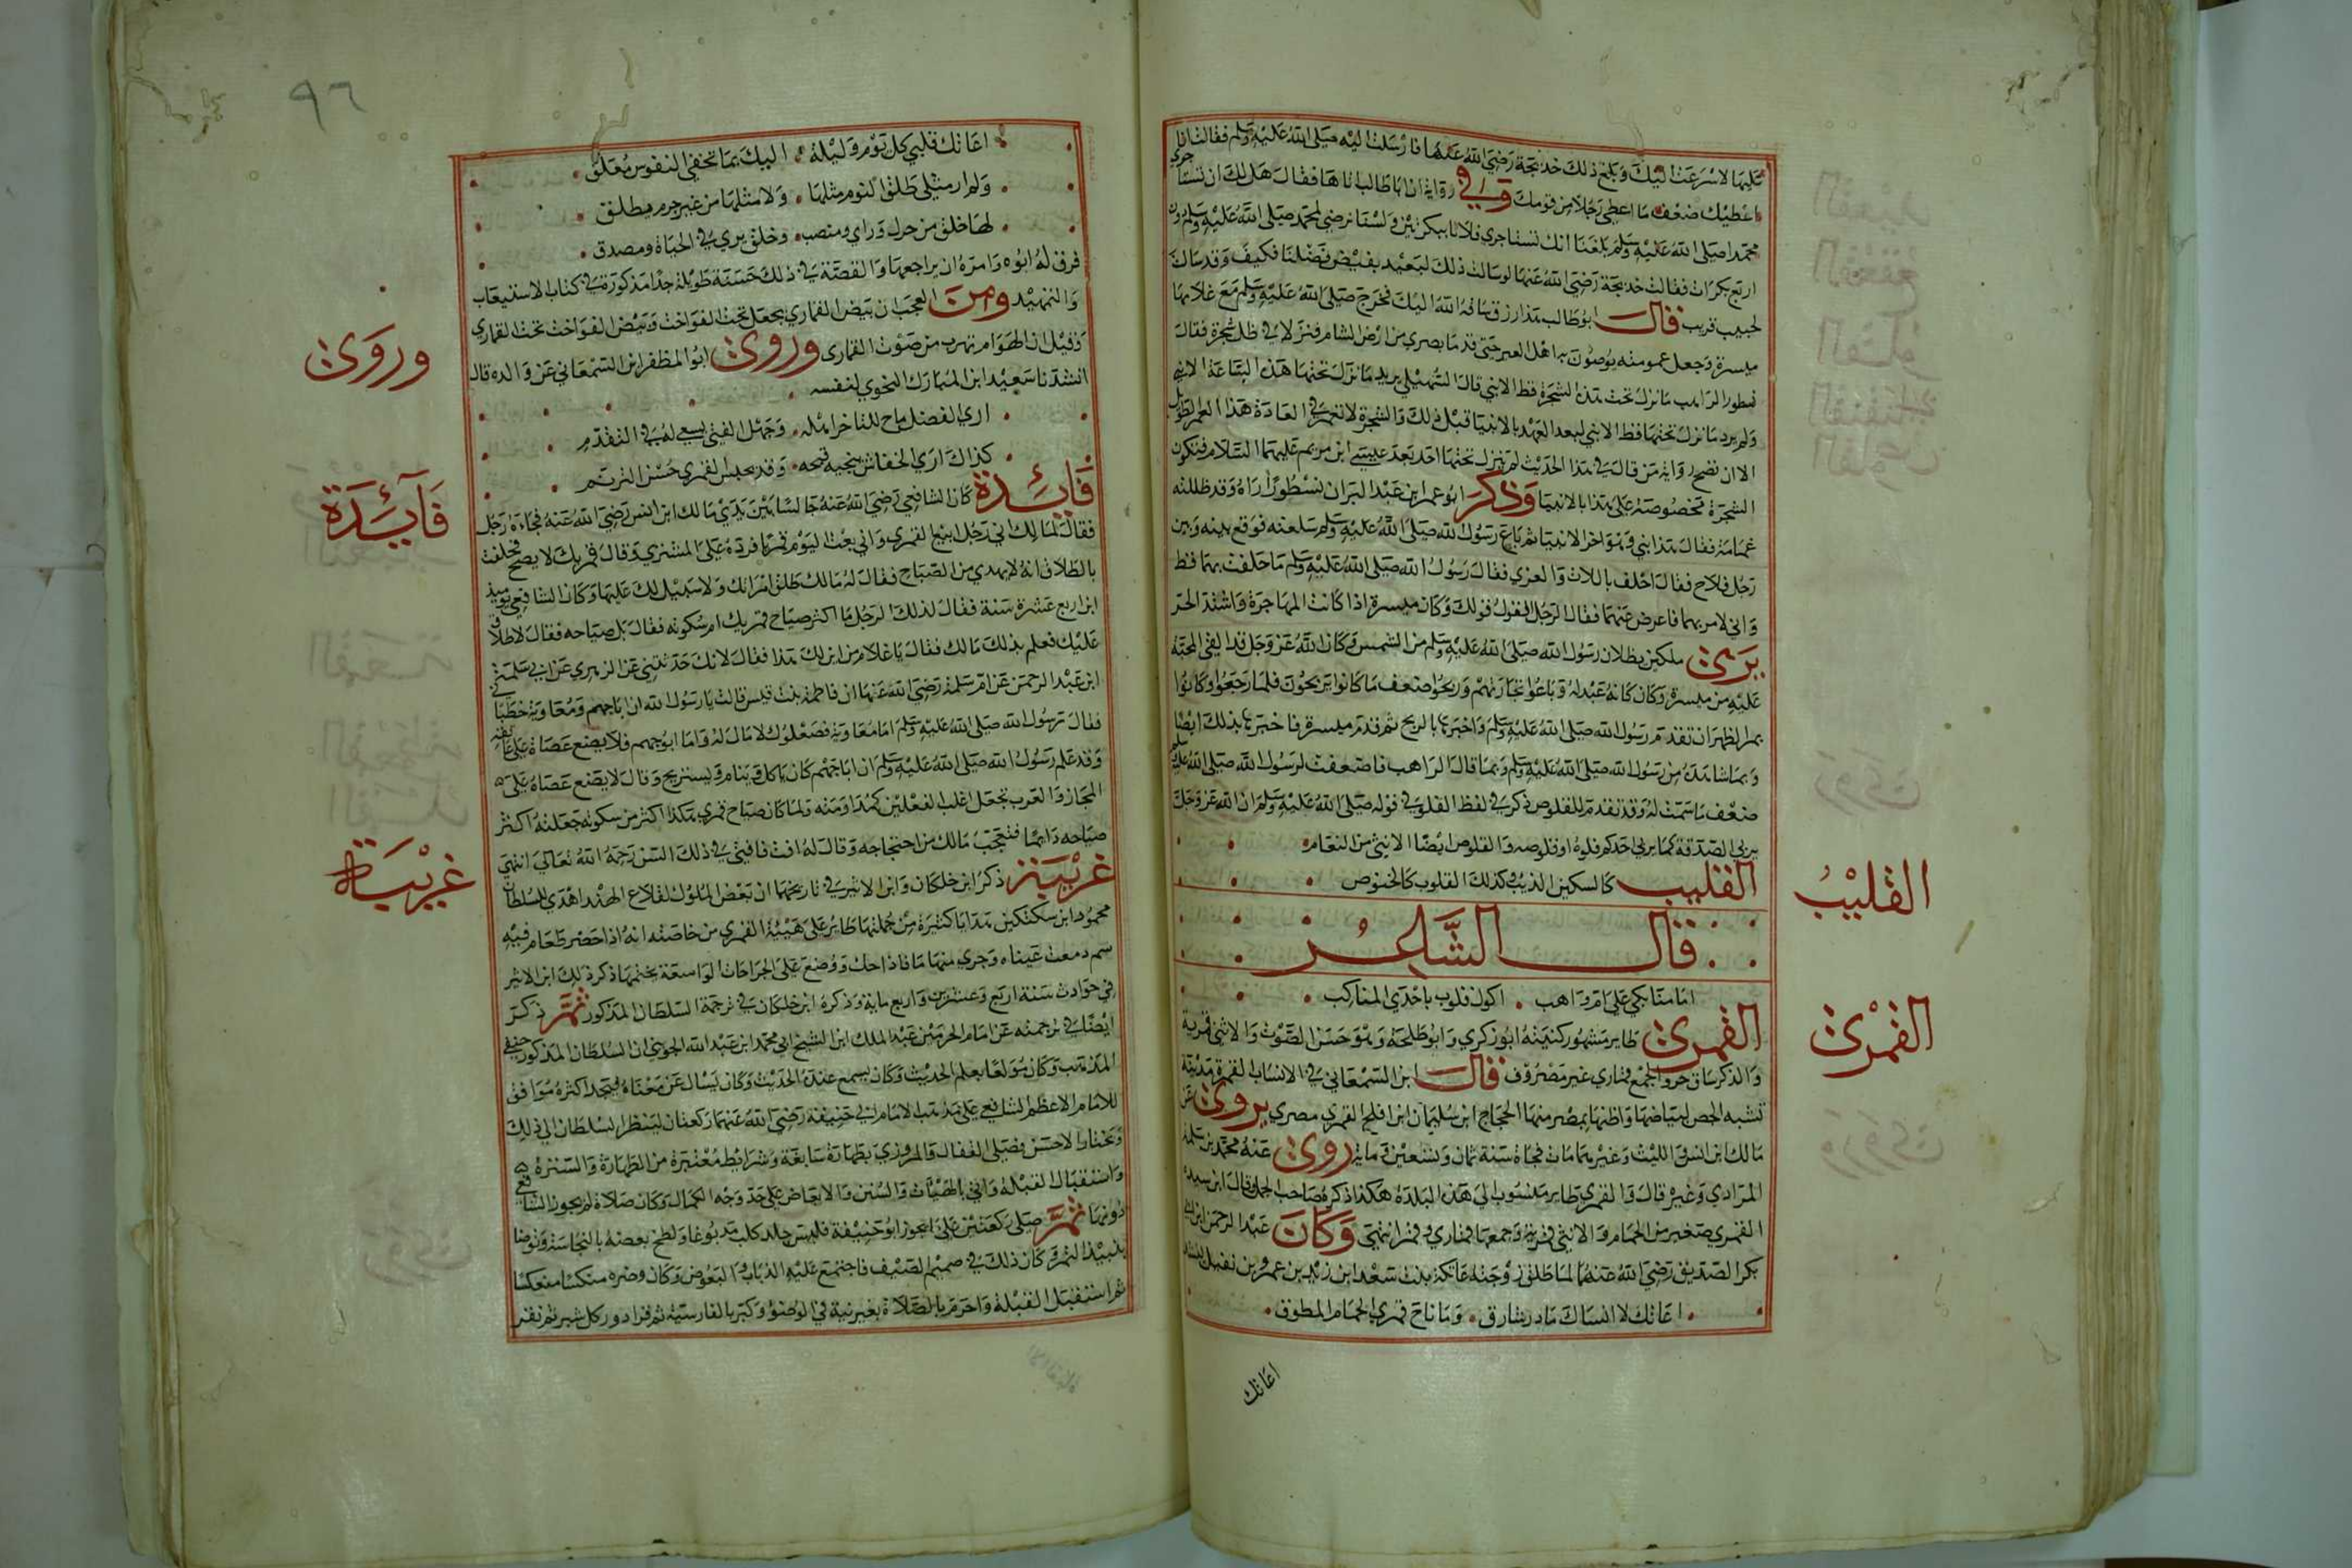 عليها لاسرعت اليك وبلغ ذلك خديجة رضي الله عنها فارسلت اليه صلى الله عليه وسلم فقالت انا
اعطيك ضعف ما اعطي رجلا من قومك وفي رواية ان ابا طالب اتاها فقال هل لك ان تستاجري
محمدا صلى الله عليه وسلم بلغنا انك تستاجري فلانا ببكرتين ولسنا نرضي لمحمد صلى الله عليه وسلم دون
اربع بكرات فقالت خديجة رضي الله عنها لو سالت ذلك لبعيد بغيض فضلنا فكيف وقد سالت
لحبيب قريب قال ابو طالب هذا رزق ساقه الله اليك فخرج صلى الله عليه وسلم مع غلامها
ميسرة وجعل عمومته يوصون به اهل العير حتى قدما بصري من ارض الشام فنزلا في ظل شجرة فقال
نسطور الراهب ما نزل تحت هذه الشجرة قط الا نبي قال السهيلي يريد ما نزل تحتها هذه الساعة الا نبي
ولم يرد ما نزل تحتها قط الا نبي لبعد العهد بالانبيا قبل ذلك والشجرة لا تعمر في العادة هذا العمر الطويل
الا ان تصح رواية من قال في هذا الحديث لم ينزل تحتها احد بعد عيسى ابن مريم عليهما السلام فتكون
الشجرة مخصوصة على هذا بالانبيا وذكر ابو عمر ابن عبد البر ان نسطورا راه وقد ظللته
غمامة فقال هذا نبي وهو اخر الانبيا ثم باع رسول الله صلى الله عليه وسلم سلعته فوقع بينه وبين
رجل فلاح فقال احلف باللات والعزي فقال رسول الله صلى الله عليه وسلم ما حلفت بهما قط
واني لامر بهما فاعرض عنهما فقال الرجل القول قولك وكان ميسرة اذا كانت الهاجرة واشتد الحر
يرى ملكين يظلان رسول الله صلى الله عليه وسلم من الشمس وكان الله عز وجل قد القى المحبة
عليه من ميسرة وكان كانه عبد له وباعوا تجارتهم وربحوا ضعف ما كانوا يربحون فلما رجعوا وكانوا
بمر الظهران تقدم رسول الله صلى الله عليه وسلم واخبرها بالربح ثم قدم ميسرة فاخبرها بذلك ايضا
وبما شاهده من رسول الله صلى الله عليه وسلم وبما قال الراهب فاضعفت لرسول الله صلى الله عليه وسلم
ضعف ما سمت له وقد تقدم للقلوص ذكر في لفظ الفلو في قوله صلى الله عليه وسلم ان الله عز وجل
يربي الصدقة كما يربي احدكم فلوه او قلوصه والقلوص ايضا الانثى من النعام
القليب كالسكين الذيب وكذلك القلوب كالخنوص
قال الشاعر
اما متا بكي على ام واهب اكول قلوب باحدي المناكب
القمري طاير مشهور كنيته ابو زكري وابو طلحة وهو حسن الصوت والانثى قمرية
والذكر ساق حر والجمع قماري غير مصروف قال ابن السمعاني في الانساب القمرة مدينة
تشبه الجص لبياضها واظنها بمصر منها الحجاج ابن سليمان ابن افلح القمري مصري يروي عن
مالك ابن انس والليث وغيرهما مات فجاة سنة ثمان وتسعين وماية روى عنه محمد بن سلمة
المرادي وغيره قال والقمري طاير منسوب الى هذه البلدة هكذا ذكره صاحب المجمل وقال ابن سيده
القمري صغير من الحمام والانثى قمرية وجمعها قماري وقمر انتهى وكان عبد الرحمن ابن ابي
بكر الصديق رضي الله عنهما لما طلق زوجته عاتكة بنت سعد ابن زيد بن عمرو بن نفيل انشد
اعاتك لا انساك ما در شارق وما ناح قمري الحمام المطوق
اعاتك
القليب
القمرى
٩٦
اعاتك قلبي كل يوم وليلة اليك بما تخفي النفوس معلق
ولم ار مثلي طلق اليوم مثلها ولا مثلها من غير جرم يطلق
لها خلق جزل وراي ومنصب وخلق يري في الحياة ومصدق
فرق له ابوه وامره ان يراجعها والقصة في ذلك حسنة طويلة جدا مذكورة في كتاب الاستيعاب
والتمهيد ومن العجب ان بيض القماري يجعل تحت الفواخت وبيض الفواخت تحت القماري
وقيل ان الهوام تهرب من صوت القماري وروى ابو المظفر ابن السمعاني عن والده قال
انشدنا سعيد ابن المبارك النحوي لنفسه
اري الفضل مناح للتاخر اهله وجهل الفتى يسعى له في التقدم
كذاك اري الخفاش ينجيه قبحه وقد يحبس القمري حسن الترنم
فايدة كان الشافعي رضي الله عنه جالسا بين يدي مالك ابن انس رضي الله عنه فجاءه رجل
فقال لمالك اني رجل ابيع القمري واني بعت اليوم قمريا فرده على المشتري وقال قمريك لا يصح فحلفت
بالطلاق انه لا يهدي من الصباح فقال له مالك طلقت امراتك ولا سبيل لك عليها وكان الشافعي يوميذ
ابن اربع عشرة سنة فقال لذلك الرجل ما اكثر صياح قمريك ام سكوته فقال بل صياحه فقال لا طلاق
عليك فعلم بذلك مالك فقال يا غلام من اين لك هذا فقال لانك حدثتني عن الزهري عن ابي سلمة
ابن عبد الرحمن عن ام سلمة رضي الله عنها ان فاطمة بنت قيس قالت يا رسول الله ان ابا جهم ومعاوية خطباني
فقال رسول الله صلى الله عليه وسلم اما معاوية فصعلوك لا مال له واما ابو جهم فلا يضع عصاه على عاتقه
وقد علم رسول الله صلى الله عليه وسلم ان ابا جهم كان ياكل وينام ويستريح وقال لا يضع عصاه على
المجاز والعرب تجعل اغلب الفعلين كمداومته ولما كان صياح قمري هكذا اكثر من سكوته جعلته اكثر
صياحه دايما فتعجب مالك من احتجاجه وقال له افت فافتي في ذلك السن رحمه الله تعالى انتهى
غريبة ذكر ابن خلكان وابن الاثير في تاريخهما ان بعض الملوك لقلاع الهند اهدي للسلطان
محمود ابن سكتكين هدايا كثيرة من جملتها طاير على هيئة القمري من خاصته انه اذا حضر طعام فيه
سم دمعت عيناه وجري منهما ما فاذا حك ووضع على الجراحات الواسعة يختمها ذكر ذلك ابن الاثير
في حوادث سنة اربع وعشرين واربع ماية وذكره ابن خلكان في ترجمة السلطان المذكور ثم ذكر
ايضا في ترجمته عن امام الحرمين عبد الملك ابن الشيخ ابي محمد ابن عبد الله الجويني ان السلطان المذكور حنفي
المذهب وكان مولعا بعلم الحديث وكان يسمع عنده الحديث وكان يسال عن معناه فيجد اكثره موافق
للامام الاعظم الشافعي على مذهب الامام ابي حنيفة رضي الله عنهما ركعتان لينظر السلطان الى ذلك
ويختار الاحسن فصلى القفال والمروزي بطهارة سابغة وشرايط معتبرة من الطهارة والسترة
واستقبال القبلة واتى بالهيئات والسنن والابعاض على حد وجه الكمال وكان صلاة لم يجوز الشافعي
دونها ثم صلى ركعتين على ما يجوز ابو حنيفة فلبس جلد كلب مدبوغا ولطخ بعضه بالنجاسة وتوضا
بنبيذ التمر وكان ذلك في صميم الصيف فاجتمع عليه الذباب والبعوض وكان وضوه منكسا منعكسا
ثم استقبل القبلة واحرم بالصلاة بغير نية في الوضوء وكبر بالفارسية ثم قرا دو ركل شبر ثم نقر
وروى
فآئدة
غريبة